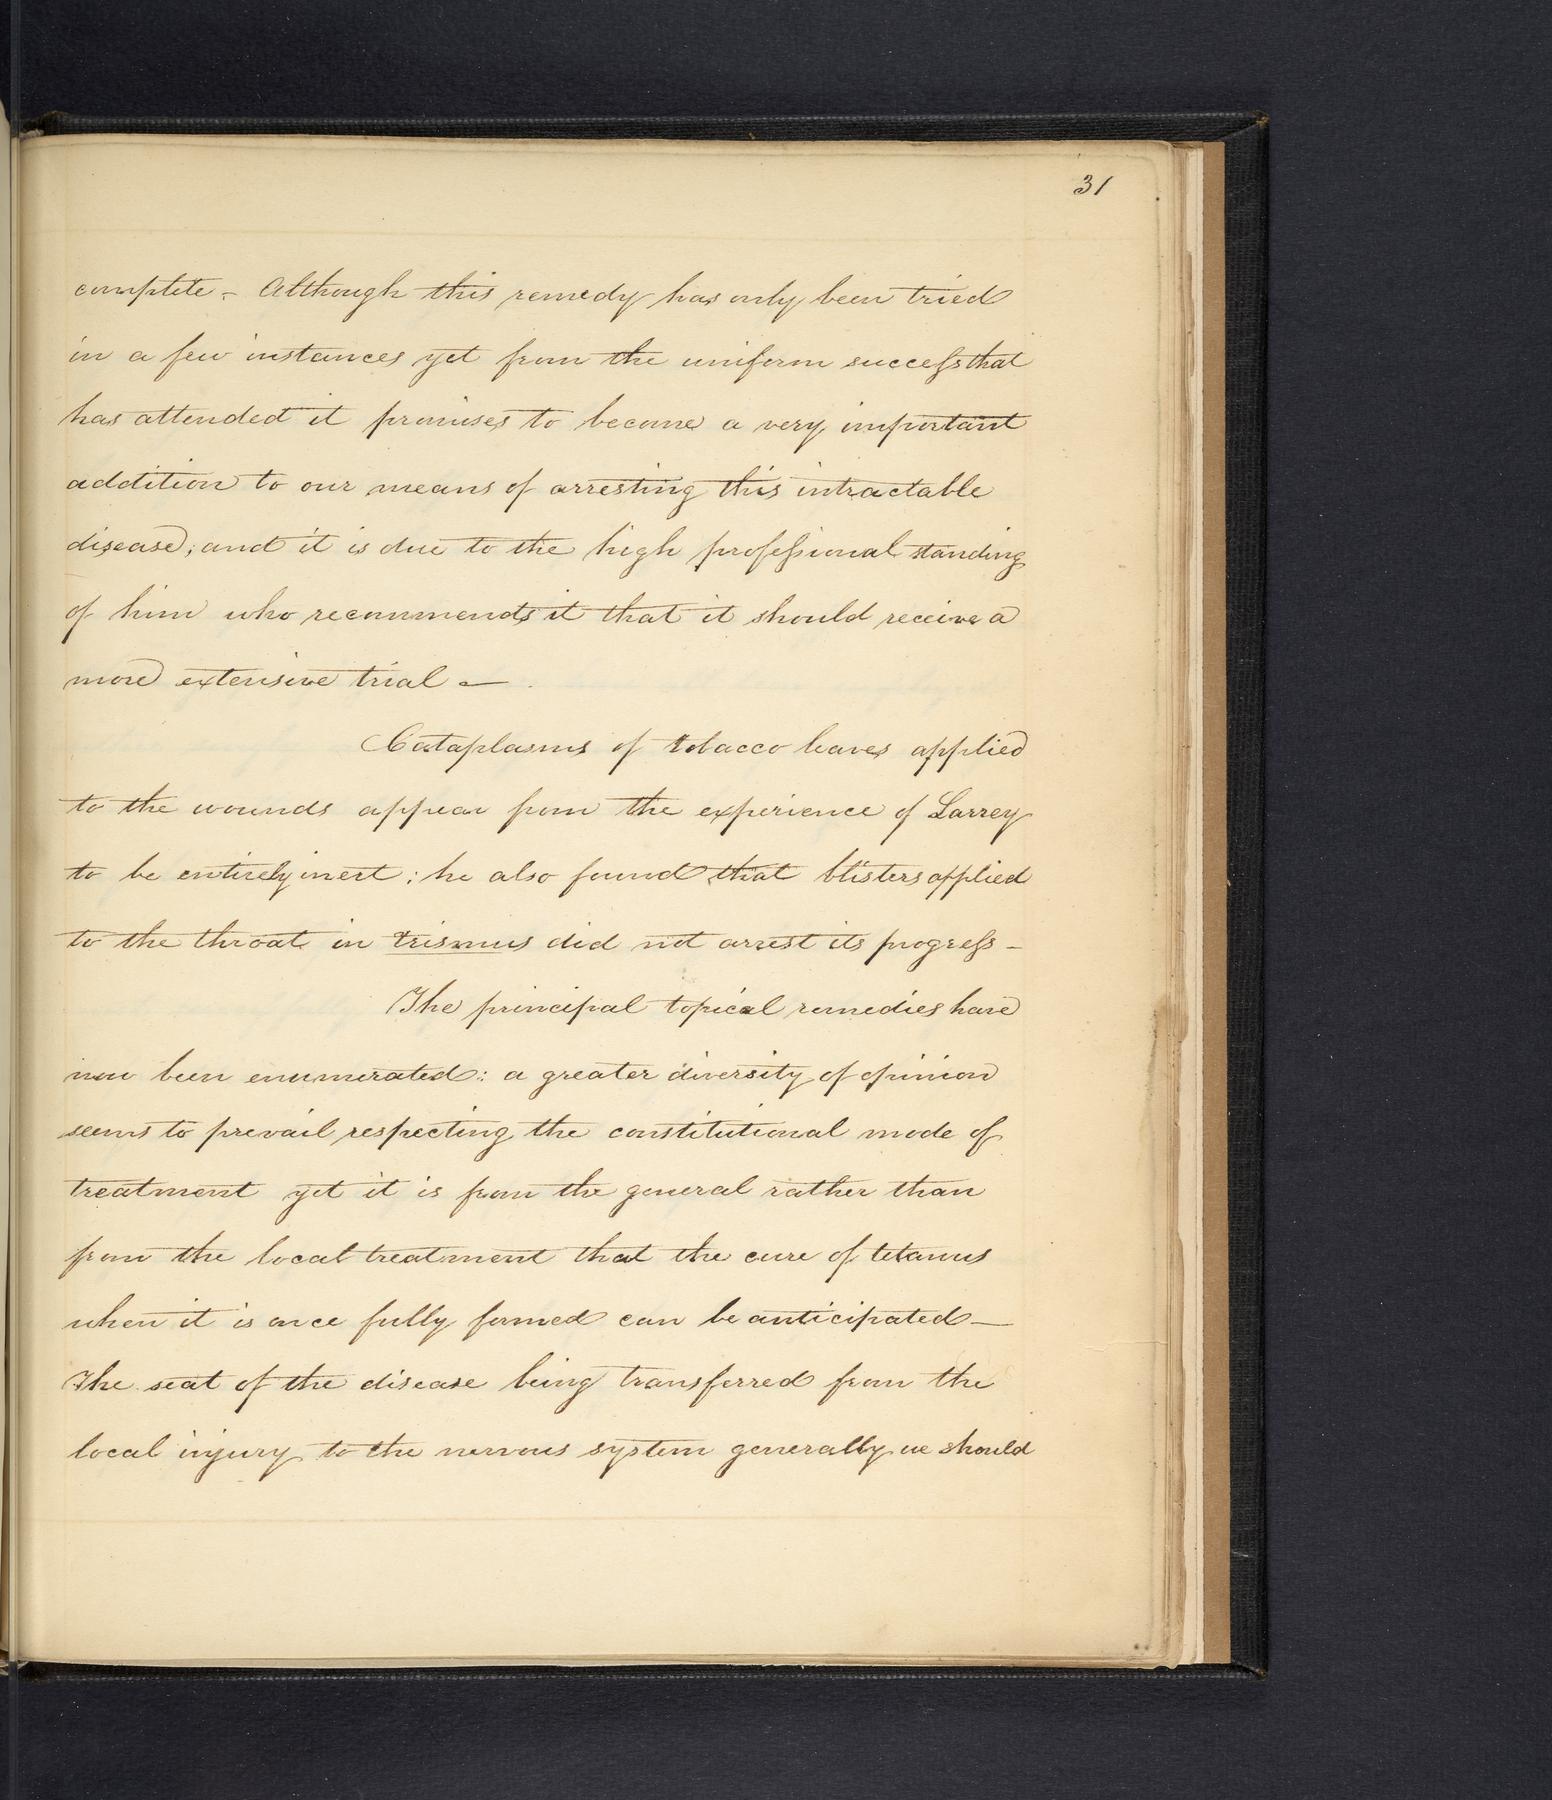 31
complete - Although this remedy has only been tried
in a few instances yet from the uniform success that
has attended it promises to become a very important
addition to our means of arresting this intractable
disease; and it is due to the high professional standing
of him who recommends it that it should receive a
more extensive trial —
Cataplasms of tobacco leaves applied
to the wounds appear from the experience of Larrey
to be entirely inert; he also found that blisters applied
to the throat in trismus did not arrest its progress -
The principal topical remedies have
now been enumerated: a greater diversity of opinion
seems to prevail respecting the constitutional mode of
treatment yet it is from the general rather than
from the local treatment that the cure of tetanus
when it is once fully formed can be anticipated —
The seat of the disease being transferred from the
local injury to the nervous system generally we should